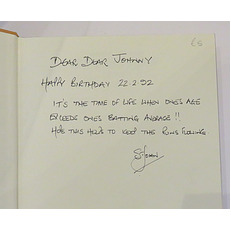 £5
DEAR DEAR JOHNNY
HAPPY BIRTHDAY 22.2.92
IT'S THE TIME OF LIFE WHEN ONE'S AGE
EXCEEDS ONE'S BATTING AVERAGE !!
HOPE THIS HELPS TO KEEP THE RUNS FLOWING